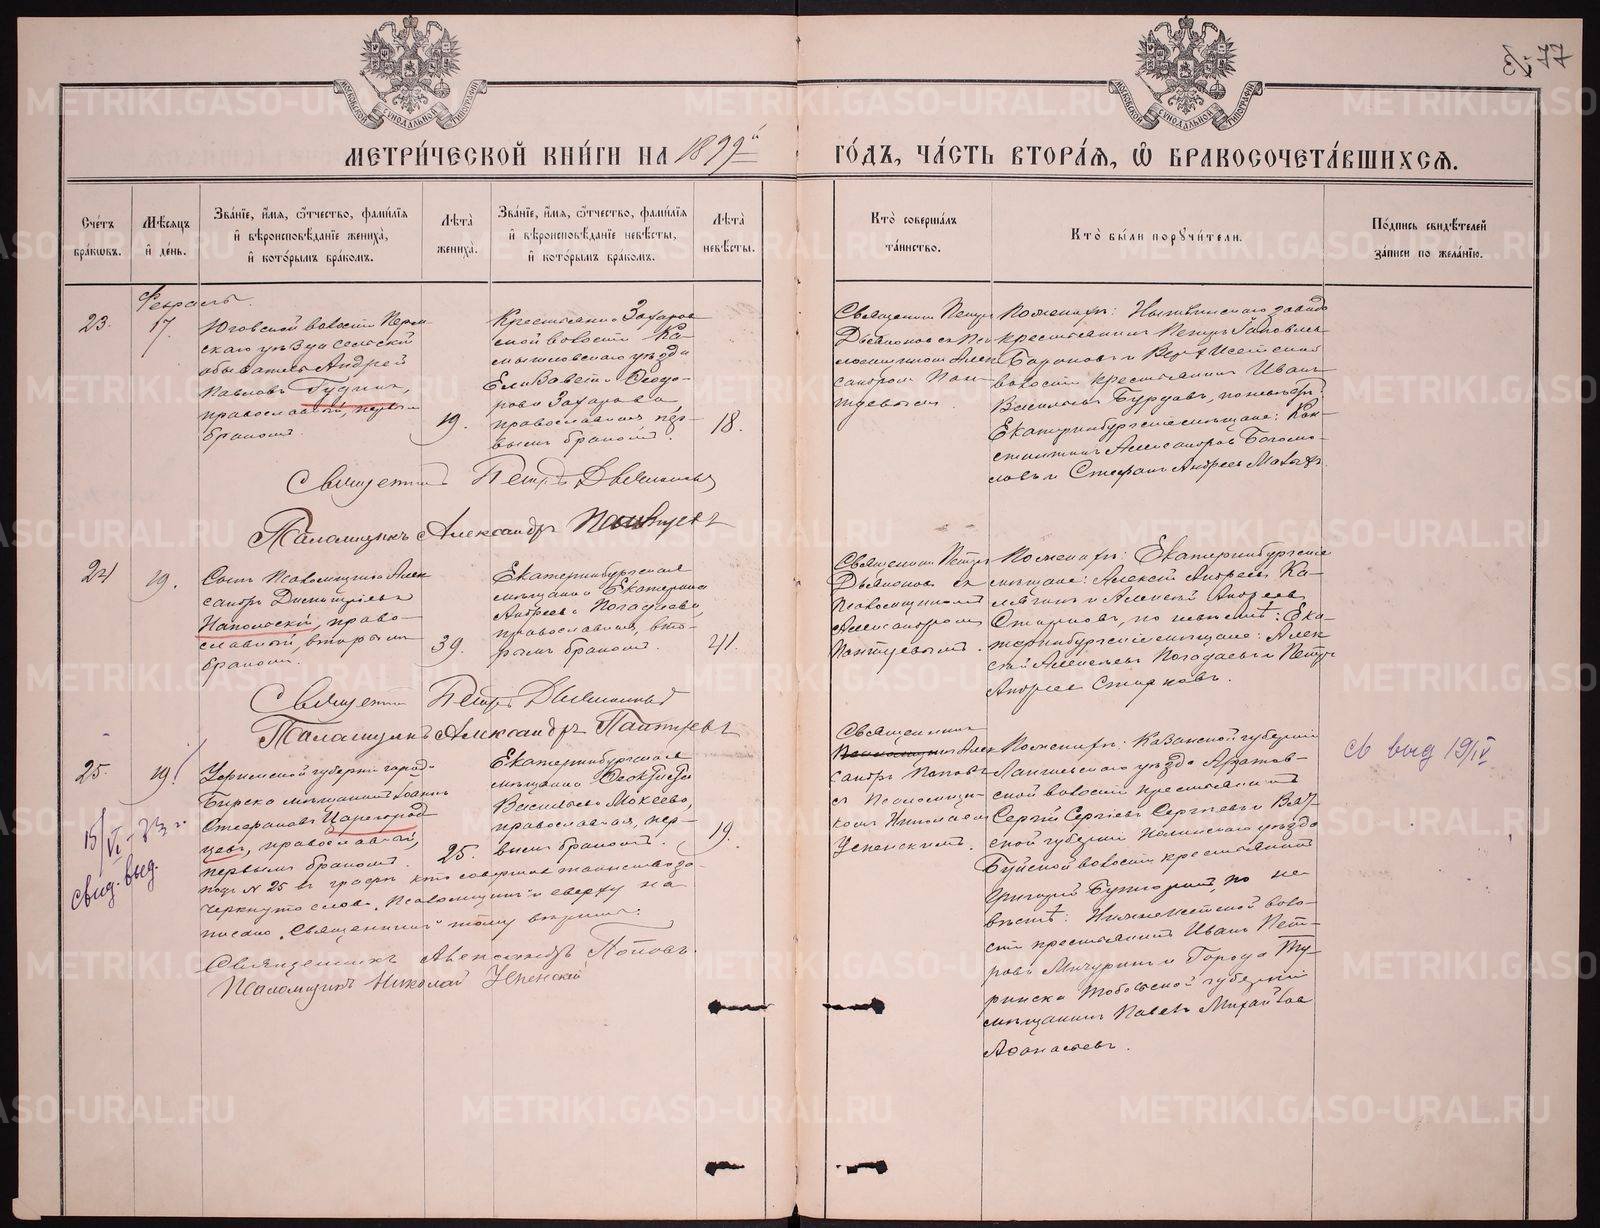 77
МЕТРИ́ЧЕСКОЙ КНИ́ГИ НА 1899й ГО́ДЪ, ЧА́СТЬ ВТОРА́Я, Ѡ БРАКОСОЧЕТА́ВШИХСЯ.
Сче́тъ бра́кѡвъ.
Мѣ́сяцъ и де́нь.
Зва́нїе, и́мя, ѻ́тчество, фами́лїя
и вѣроисповѣ́данїе жениха̀,
и кото́рымъ бра́комъ.
Лѣта̀ жениха̀.
Зва́нїе, и́мя, ѻ́тчество, фами́лїя
и вѣроисповѣ́данїе невѣ́сты,
и кото́рымъ бра́комъ.
Лѣта̀ невѣ́сты.
Кто̀ соверша́лъ
та́инство.
Кто̀ бы́ли порꙋчи́тели.
По́дпись свидѣ́телей
за́писи по жела́нїю.
Февраль.
23.
17.
Юговской волости Перм
скаго уѣзда сельскій
обыватель Андрей
Павловъ Гудинъ,
православный, первым
бракомъ.
19.
Крестьянка Захаров
ской волости Ка-
мышловскаго уѣзда
Елизавета Ѳеодо-
рова Захарова
православная пер-
вымъ бракомъ.
18.
Священник Петръ
Дьяконовъ съ Пса
ломщикомъ Алек
сандромъ Пан-
туевымъ.
По женихѣ: Нытвинскаго завода
крестьянинъ Петръ
Бароновъ и Верх Исетской
волости крестьянин Иванъ
Васильевъ Бурдовъ, по невѣстѣ:
Екатеринбургские мѣщане: Кон-
стантинъ Александровъ Богомо-
ловъ и Стефанъ Андреев
Священникъ Петръ Дьяконовъ
Псаломщикъ Александръ Пантуевъ
24
19.
Сынъ Псаломщика Алек
сандръ Димитріевъ
Наполскій, право-
славный, вторымъ
бракомъ.
39.
Екатеринбургская
мѣщанка Екатерина
Андреева Погодаева,
православная, вто-
рымъ бракомъ.
41.
Священник Петръ
Дьяконовъ съ
Псаломщикомъ
Александромъ
Пантуевымъ.
По женихѣ: Екатеринбургские
мѣщане: Алексѣй Андреевъ Ка-
и Алексѣй Андреевъ
по невѣстѣ: Ека-
теринбургские мѣщане: Алек
сѣй Алексѣевъ Погодаевъ и Петръ
Андреев
Священникъ Петръ Дьяконовъ
Псаломщикъ Александръ Пантуевъ
25.
19.
Уфимской губерніи города
Бирска мѣщанинъ Іоаннъ
Стефановъ Царегород
цевъ, православный,
первымъ бракомъ.
25.
Екатеринбургская
мѣщанка Ѳеоктиста
Васильева Мокеева,
православная, пер-
вымъ бракомъ.
19.
Священникъ
Псаломщикъ Алек
сандръ Поповъ
съ Псаломщи-
комъ Николаемъ
Успенскимъ.
По женихѣ: Казанской губерніи
Лаишевскаго уѣзда
ской волости крестьянинъ
Сергѣй Сергѣевъ Сергѣевъ и Вят
ской губерніи Нолинскаго уѣзда
Буйской волости крестьянинъ
Григорій по не
вѣстѣ: Нижнеисетской воло-
сти крестьянинъ Иванъ Пет-
ровъ Мичуринъ и города Ту-
ринска Тобольской губерніи
мѣщанинъ Павелъ Михайлов
Афанасьевъ.
св выд 19/IV
15/VI-23 г.
свид. выд.
подъ № 25 въ графѣ кто совершалъ таинство за-
черкнуто слово „Псаломщикъ" и сверху на
писано „Священникъ" тому вѣрить.
Священникъ Александръ Поповъ.
Псаломщикъ Николай Успенскій